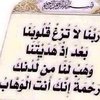 رَبَّنَا لَا تُزِغْ قُلُوبَنَا
بَعْدَ إِذْ هَدَيْتَنَا
وَهَبْ لَنَا مِن لَّدُنكَ
رَحْمَةً إِنَّكَ أَنتَ الْوَهَّابُ